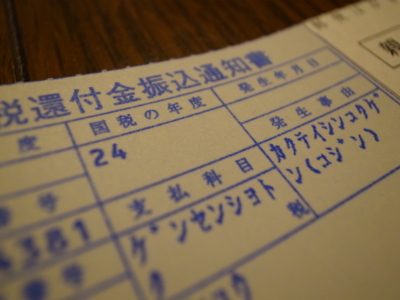 税還付金振込通知書
度 国税の年度 発生年月日
24
番号 支払科目 発生事由
4381 ゲンセンシヨト カクテイシンコクゲ
ン(コジン)
税
番号